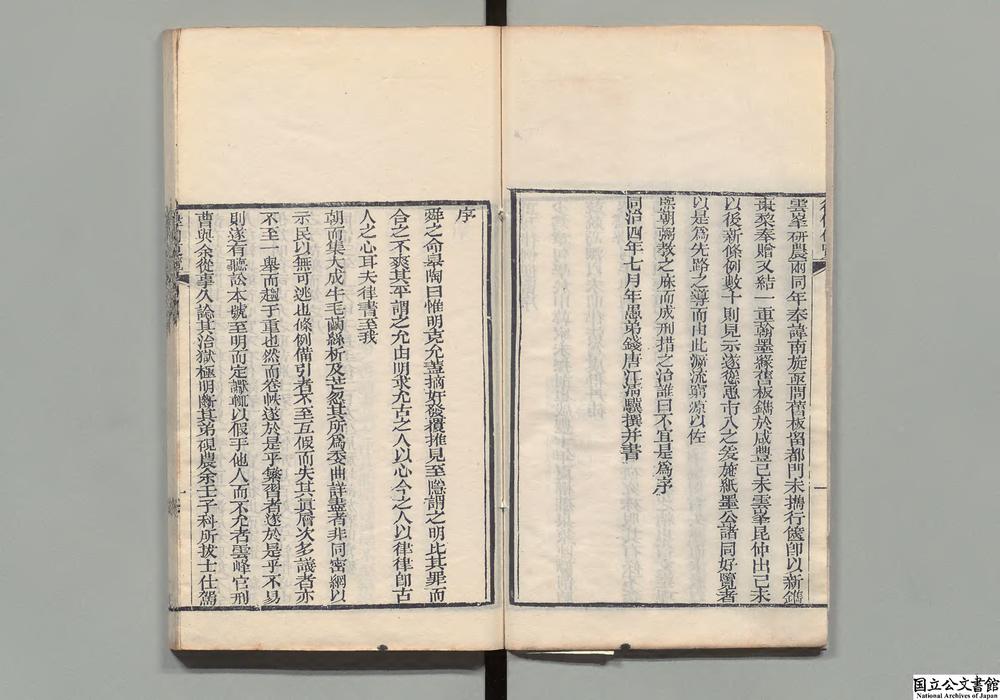 雲峯研農兩同年奉諱南旋亟問舊板留都門未攜行篋卽以新鐫
棗棃奉贈又結一重翰墨緣舊板鐫於咸豐己未雲峯昆仲出己未
以後新條例數十則見示遂慫恿市人之爰施紙墨公諸同好覽者
以是爲先路之導而由此溯流窮源以佐
熙朝弼教之庥而成刑措之治誰曰不宜是爲序
同治四年七月年愚弟錢唐江清驥撰幷書
序
舜之命皋陶曰惟明克允蓋摘奸發覆推見至隱謂之明比其罪而
合之不爽其平謂之允由明求允古之人以心今之人以律律卽古
人之心耳夫律書至我
朝而集大成牛毛繭絲析及芒忽其所爲委曲詳盡者非同密網以
示民以無可逃也條例備引者不至互假而失其眞層次多議者亦
不至一舉而趨于重也然而卷帙遂於是乎縣習者遂於是乎不易
則遂有聽訟本號至明而定讞輒以假手他人而不允者雲峰官刑
曹與余從事久諗其治獄極明斷其弟硯農余壬子科所拔士仕駕
国立公文書館
National Archives of Japan